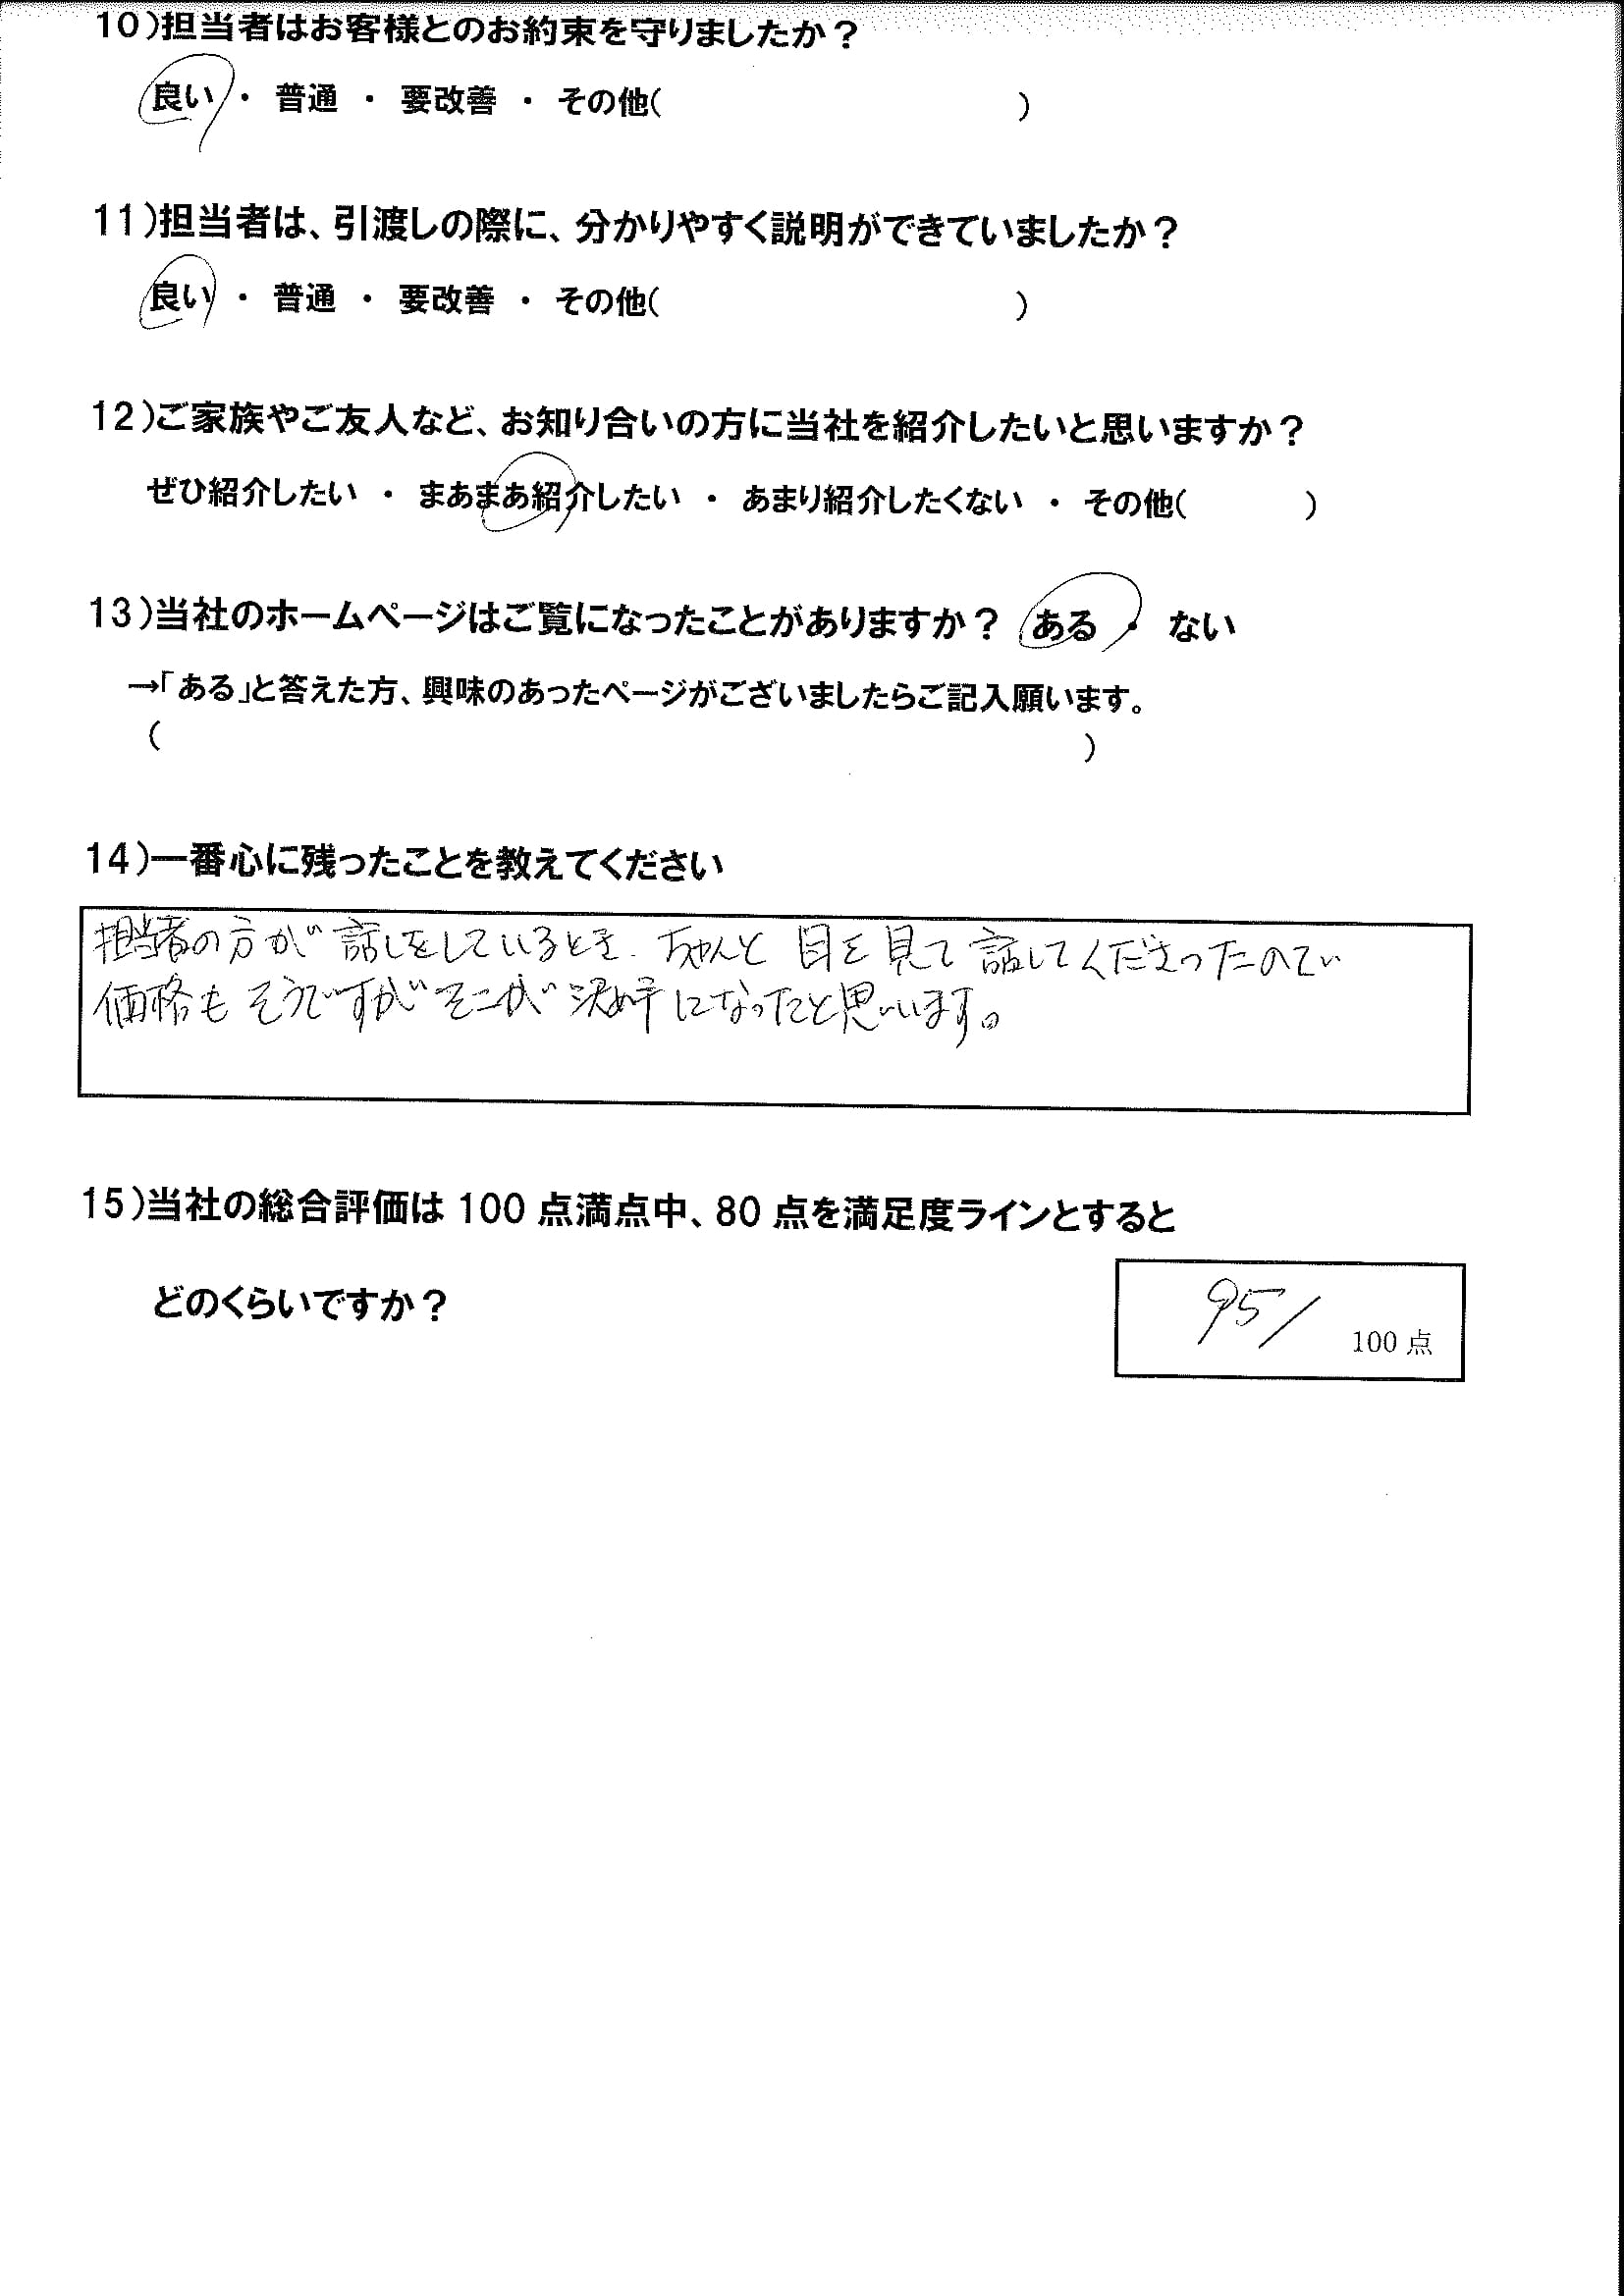 10)担当者はお客様とのお約束を守りましたか？
良い ・ 普通 ・ 要改善 ・ その他(　　　　　　　　　　　)
11)担当者は、引渡しの際に、分かりやすく説明ができていましたか？
良い ・ 普通 ・ 要改善 ・ その他(　　　　　　　　　　　)
12)ご家族やご友人など、お知り合いの方に当社を紹介したいと思いますか？
ぜひ紹介したい ・ まあまあ紹介したい ・ あまり紹介したくない ・ その他(　　　　)
13)当社のホームページはご覧になったことがありますか？ ある ・ ない
→「ある」と答えた方、興味のあったページがございましたらご記入願います。
(　　　　　　　　　　　　　　　　　　　　　　　　　　　　　)
14)一番心に残ったことを教えてください
担当者の方が話しをしているとき、ちゃんと目を見て話してくださったので
価格もそうですがそこが決め手になったと思います。
15)当社の総合評価は 100 点満点中、80 点を満足度ラインとすると
どのくらいですか？
95/ 100 点